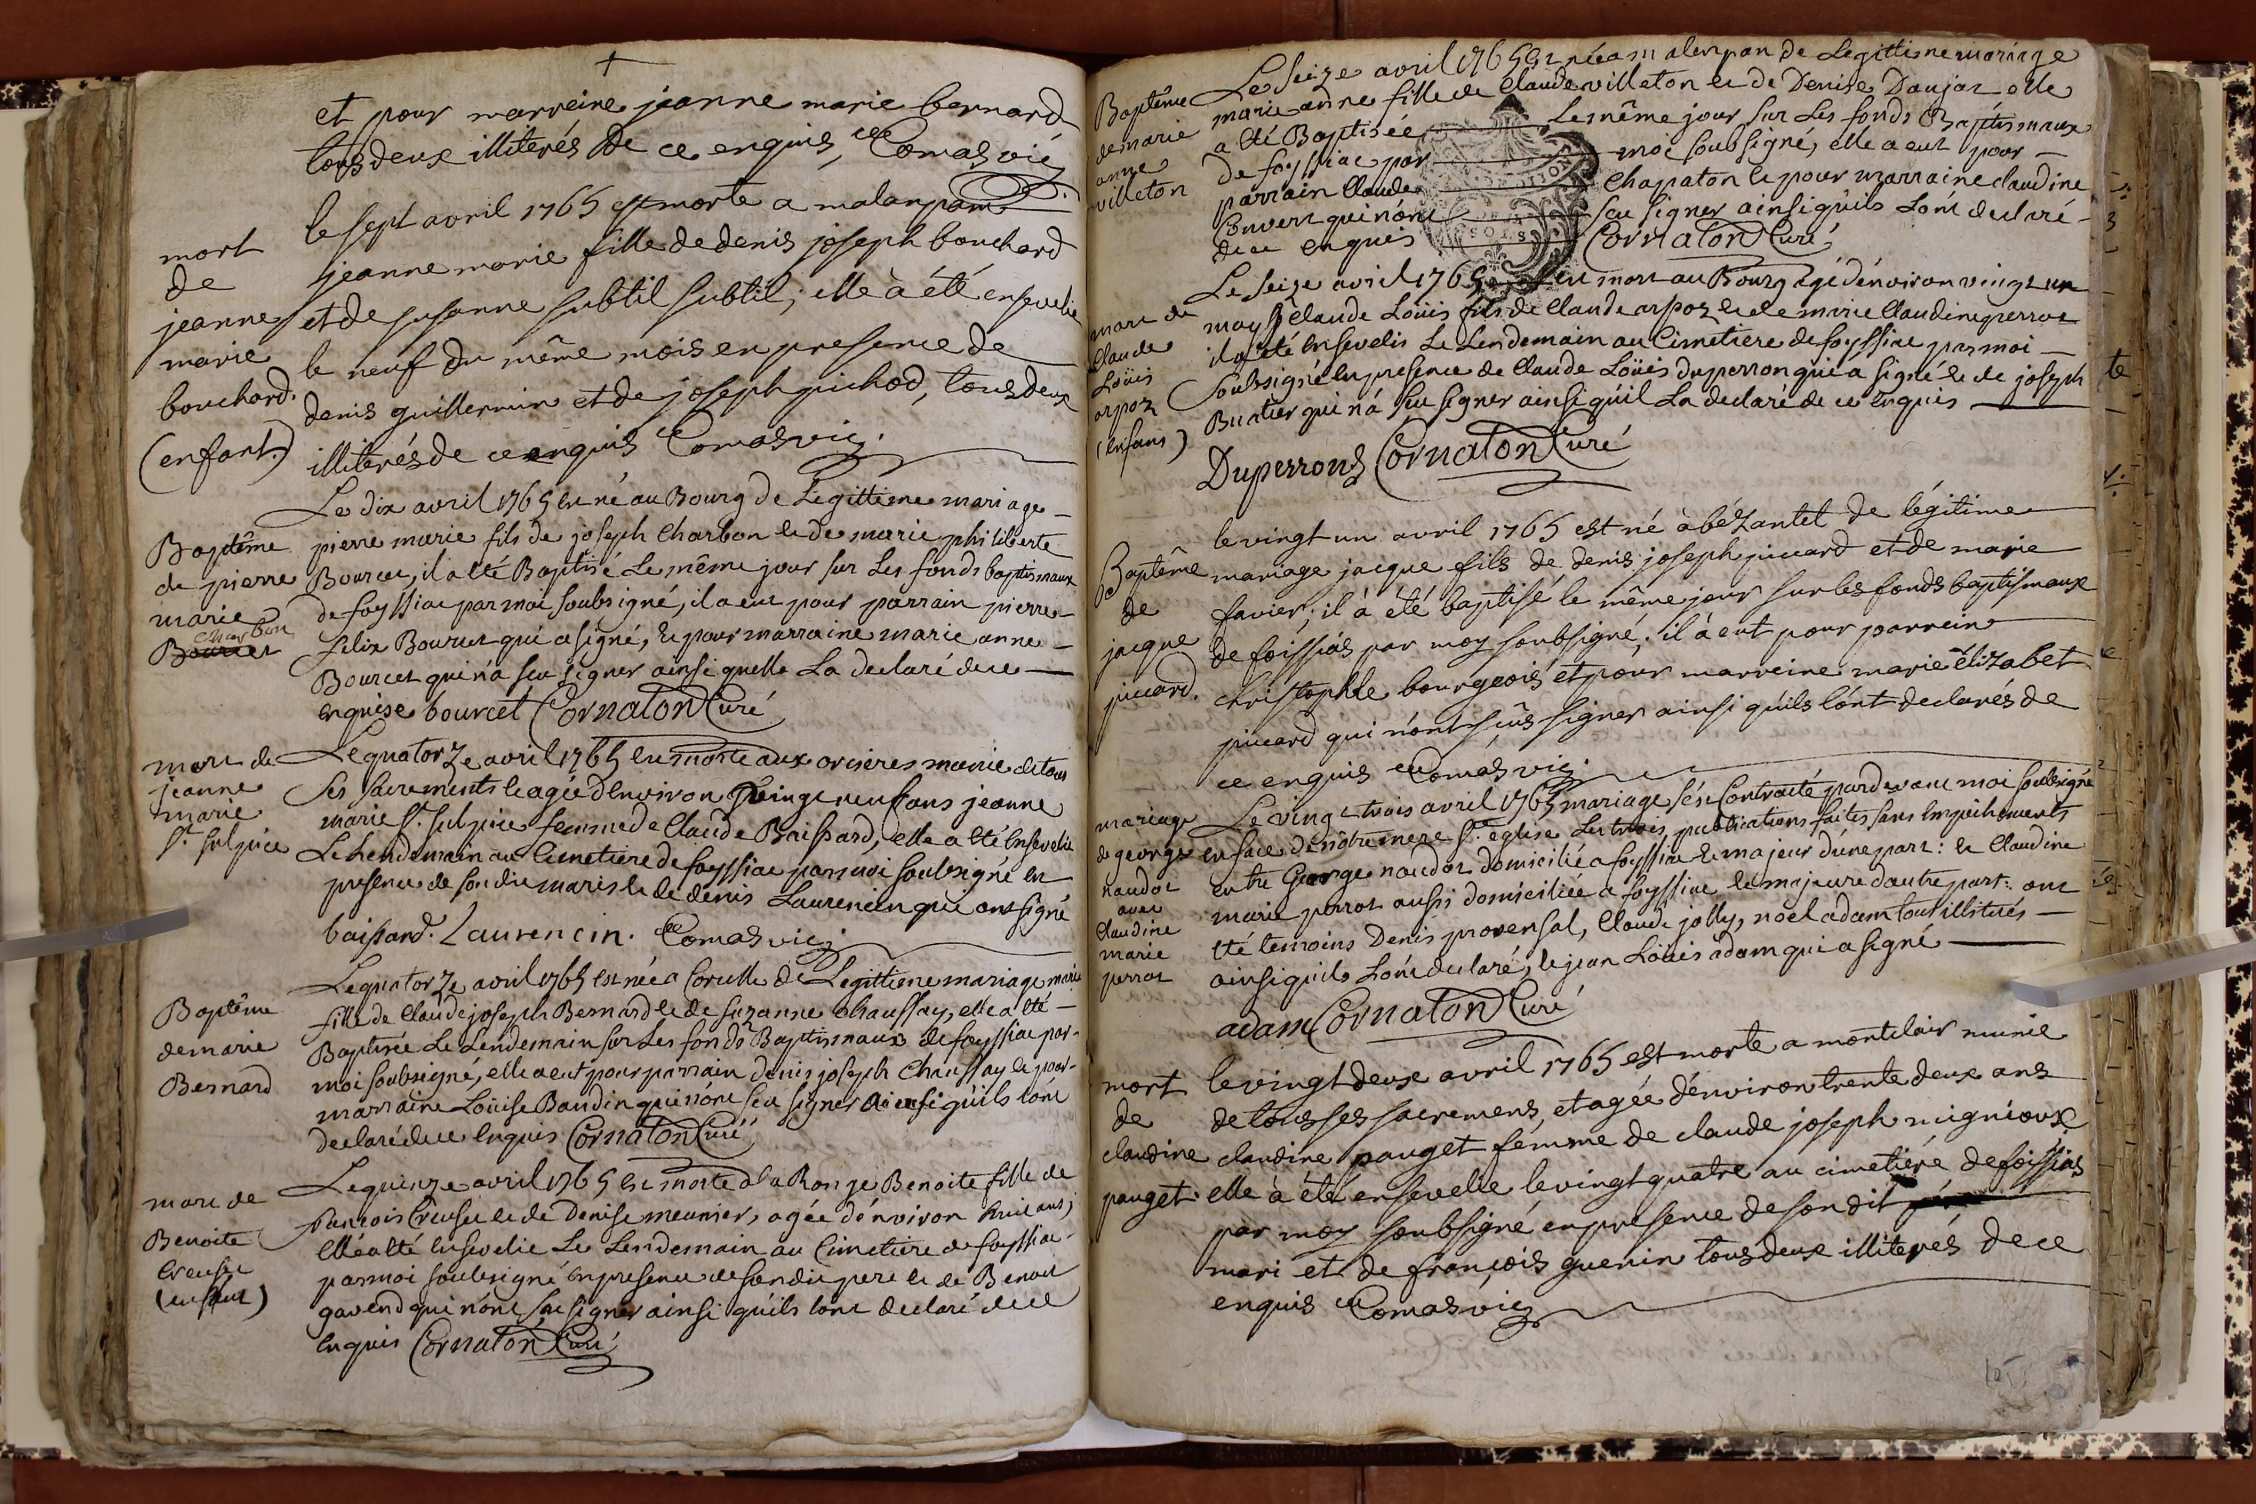 et pour marreine jeanne marie bernard
tous deux illiterés de ce enquis, Comas vic.
mort
de
jeanne
marie
bouchard.
(enfant.)
le sept avril 1765 est morte a malanpam
jeanne marie fille de denis joseph bouchard
et de susanne subtil subtil; elle à été ensevelie
le neuf du même mois en presence de
denis guillermin et de joseph pichod, tous deux
illiterés de ce enquis Comas vic.
Baptême
de pierre
marie
charbon
Bourcet
Le dix avril 1765 est né au Bourg de Legittime mariage
pierre marie fils de joseph Charbon et de marie philiberte
Bourcet, il a été Baptisé Le même jour sur Les fonds baptismaux
de foyssiac par moi soubsigné, il a eut pour parrain pierre
felix Bourcet qui a signé, et pour marraine marie anne
Bourcet qui n'á seu signer ainsi quelle La declaré de ce
enquise bourcet Cornaton Curé
mort de
jeanne
marie
st. sulpice
Le quatorze avril 1765 est morte aux orcieres munie de tous
Ses Sacrements et agée d'environ vingt neuf ans jeanne
marie st. sulpice femme de Claude Baissard, elle a été Ensevelie
Le Lendemain au Cimetiere de foyssiac par moi soubsigné en
presence de son dit maris et de denis Laurencin qui ont signé
baissard. Laurencin. Comas vic.
Baptême
de marie
Bernard
Le quatorze avril 1765 est née a Corcelle de Legittime mariage marie
fille de Claude joseph Bernard et de suzanne Chaussay, elle a été
Baptisée Le Lendemain sur Les fonds Baptismaux de foyssiac par
moi soubsigné, elle a eut pour parrain denis joseph Chaussay et pour
marraine Loüise Baudin qui n'ónt seu signer ainsi qu'ils l'ónt
declaré de ce Enquis Cornaton Curé
mort de
Benoite
Creuset
(enfant)
Le quinze avril 1765 est morte a la Ronze Benoite fille de
francois Creuset et de Denise meunier, agée d'énviron huit ans;
Elle a été Ensevelie Le Lendemain au Cimetiere de foyssiac
par moi soubsigné en presence de son dit pere et de Benoit
gavend qui n'ónt seu signer ainsi qu'ils l'ont declaré de ce
Enquis Cornaton Curé
Baptême
de marie
anne
villeton
Le Seize avril 1765 Est née a malenpan de Legittime mariage
marie anne fille de Claude villeton et de Denise Daujat elle
a été Baptisée Le même jour sur Les fonds Baptismaux
de foyssiac par moi soubsigné, elle a eut pour
parrain Claude Chapaton et pour marraine claudine
Convert qui n'ónt seu signer ainsi qu'ils L'ónt declaré
de ce enquis Cornaton Curé
mort de
Claude
Loüis
arpoz
(enfans)
Le Seize avril 1765 est mort au Bourg agé d'énviron vingt un
moys Claude Loüis fils de Claude arpoz et de marie Claudine perrot
il a été Ensevelis Le Lendemain au Cimetiere de foyssiac par moi
Soubsigné En presence de Claude Loüis duperron qui a signé et de joseph
Buatier qui n'á seu signer ainsi qu'il La declaré de ce Enquis
Duperrond Cornaton Curé
Baptême
de
jacque
piccard.
le vingt un avril 1765 est né à bézantet de légitime
mariage jacque fils de denis joseph piccard et de marie
favier; il à été baptisé le même jour sur les fonds baptismaux
de foissiás par moy soubsigné; il à eut pour parrein
christophle bourgeois et pour marreine marie élizabet
piccard qui n'ónt sçûs signer ainsi qu'ils l'ónt declarés de
ce enquis Comas vic.
mariage
de george
naudot
avec
Claudine
marie
perrot
Le vingt trois avril 1765 mariage s'ést Contracté pardevant moi soubsigné
en face de nôtre mere ste. église Les trois publications faites sans Empêchements
entre George naudot domicilié a foyssiac et majeur d'une part: et Claudine
marie perrot aussi domiciliée a foyssiac et majeure d'autre part: ont
été temoins Denis provensal, Claude jolly, noël adam tout illiterés
ainsi quils L'ónt declaré, et jean Loüis adam qui a signé
adam Cornaton Curé
mort
de
claudine
pauget
le vingt deux avril 1765 est morte a montclair munie
de tous ses sacremens, et agée d'énviron trente deux ans
claudine pauget fémme de claude joseph mignioux
elle à été ensevelie le vingt quatre au cimetiére de foissiás
par moy soubsigné en presence de son dit
mari et de françois guenin tous deux illiterés de ce
enquis Comas vic.